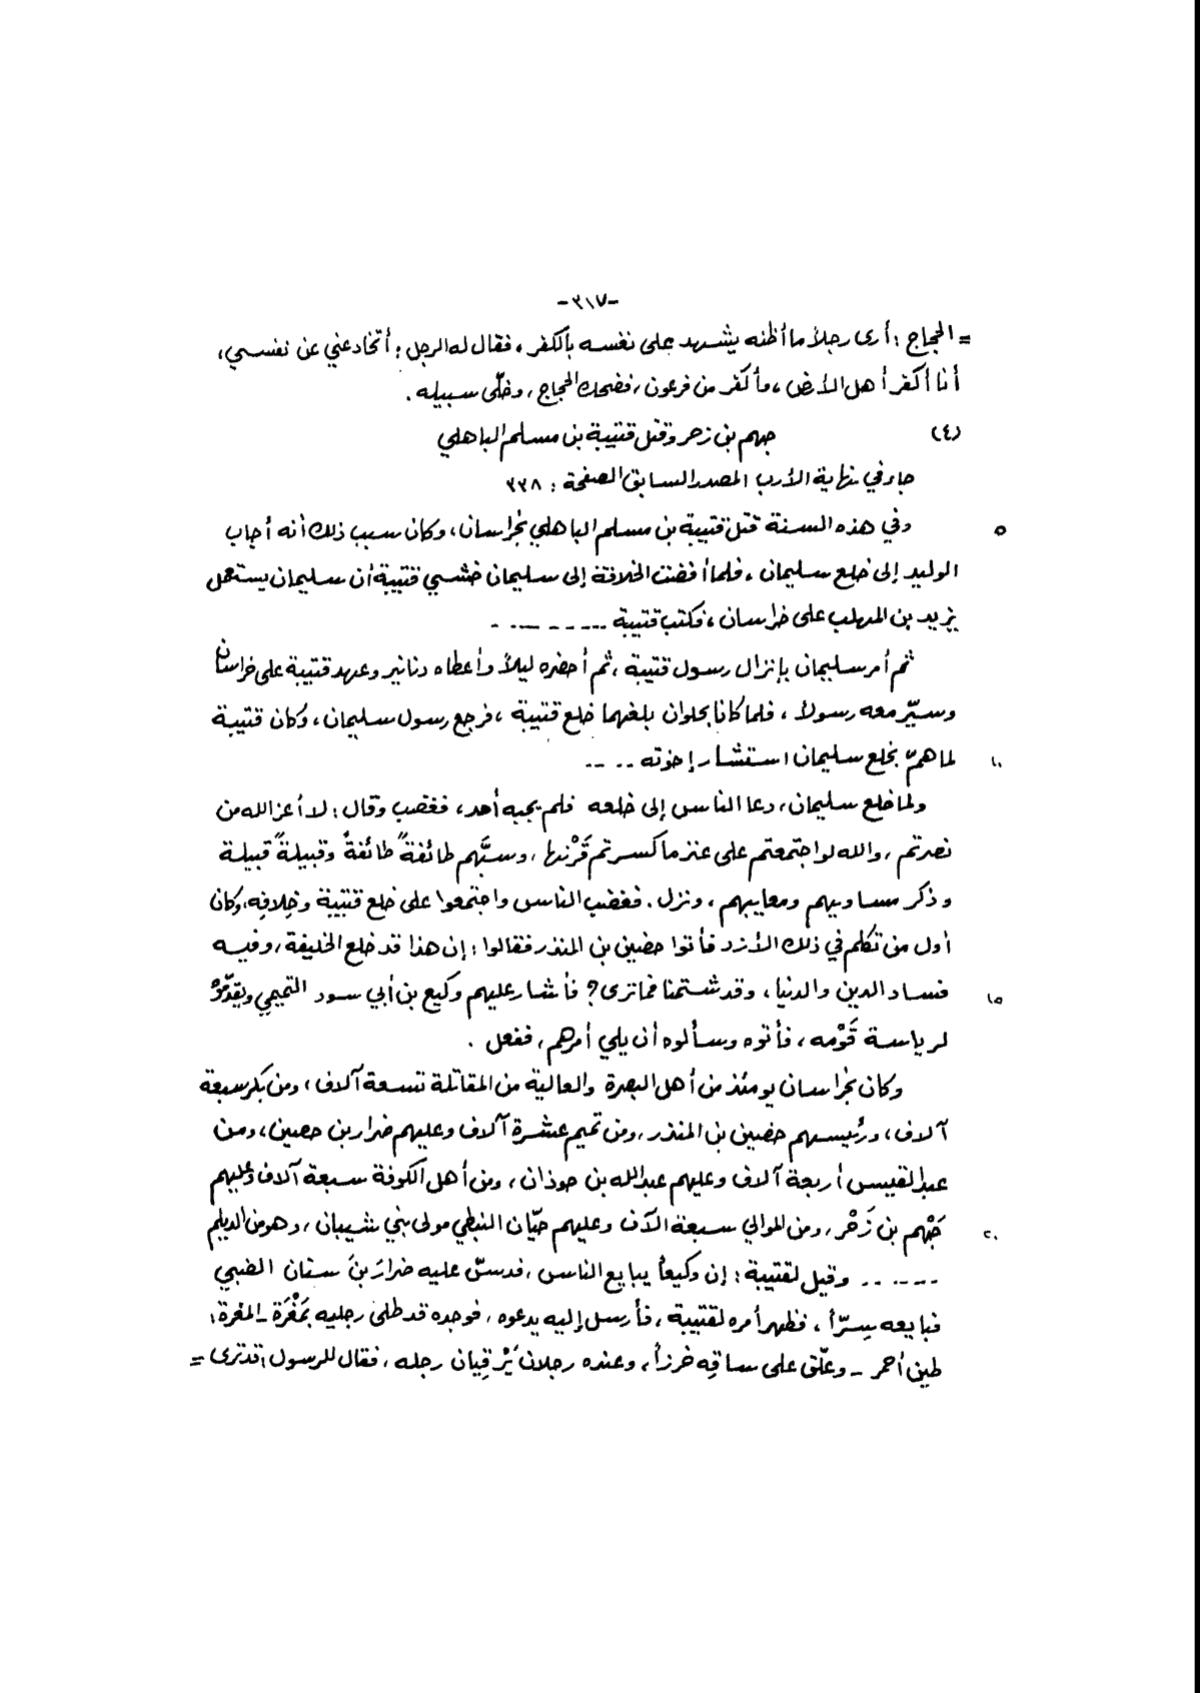 -٣١٧-
= الحجاج : أرى رجلاً ما أظنه يشهد على نفسه بالكفر ، فقال له الرجل : أتخادعني عن نفسي ،
أنا أكفر أهل الأرض ، وأكفر من فرعون ، فضحك الحجاج ، وخلّى سبيله .
(٤) جهم بن زحر وقتل قتيبة بن مسلم الباهلي
جاء في نهاية الأرب المصدر السابق الصفحة : ٣٣٨
٥ وفي هذه السنة قتل قتيبة بن مسلم الباهلي بخراسان ، وكان سبب ذلك أنه أجاب
الوليد إلى خلع سليمان ، فلما أفضت الخلافة إلى سليمان خشي قتيبة أن سليمان يستعمل
يزيد بن المهلب على خراسان ، فكتب قتيبة ---------
ثم أمر سليمان بإنزال رسول قتيبة ، ثم أحضره ليلاً وأعطاه دنانير وعهد قتيبة على خراسان
وسيّر معه رسولاً ، فلما كانا بحلوان بلغهما خلع قتيبة ، فرجع رسول سليمان ، وكان قتيبة
١٠ لما همّ بخلع سليمان استشار إخوته ----
ولما خلع سليمان ، دعا الناس إلى خلعه فلم يجبه أحد ، فغضب وقال : لا أعز الله من
نصرتم ، والله لو اجتمعتم على عنز ما كسرتم قَرْنها ، وسبَّهم طائفةً طائفةً وقبيلةً قبيلة
وذكر مساويهم ومعايبهم ، ونزل . فغضب الناس واجتمعوا على خلع قتيبة وخِلافِه ، وكان
أول من تكلم في ذلك الأزد فأتوا حضين بن المنذر فقالوا : إن هذا قد خلع الخليفة ، وفيه
١٥ فساد الدين والدنيا ، وقد شتمنا فما ترى ؟ فأشار عليهم وكيع بن أبي سود التميمي ويقدّموْه
لرياسة قَوْمه ، فأتوه وسألوه أن يلي أمرهم ، ففعل .
وكان بخراسان يومئذ من أهل البصرة والعالية من المقاتلة تسعة آلاف ، ومن بكر سبعة
آلاف ، ورئيسهم حضين بن المنذر ، ومن تميم عشرة آلاف وعليهم ضرار بن حصين ، ومن
عبد القيس أربعة آلاف وعليهم عبد الله بن حوذان ، ومن أهل الكوفة سبعة آلاف وعليهم
٢٠ جَهْم بن زَحْر ، ومن الموالي سبعة آلاف وعليهم حيّان النبطي مولى بني شيبان ، وهو من الديلم
------ وقيل لقتيبة : إن وكيعاً يبايع الناس ، فدسّ عليه ضرارَ بنَ سنان الضبي
فبايعه سِرّاً ، فظهر أمره لقتيبة ، فأرسل إليه يدعوه ، فوجده قد طلى رجليه بمَغْرَة - المغرة :
طين أحمر - وعلّق على ساقِه خرزاً ، وعنده رجلان يَرْقِيان رجله ، فقال للرسول : قد ترى =